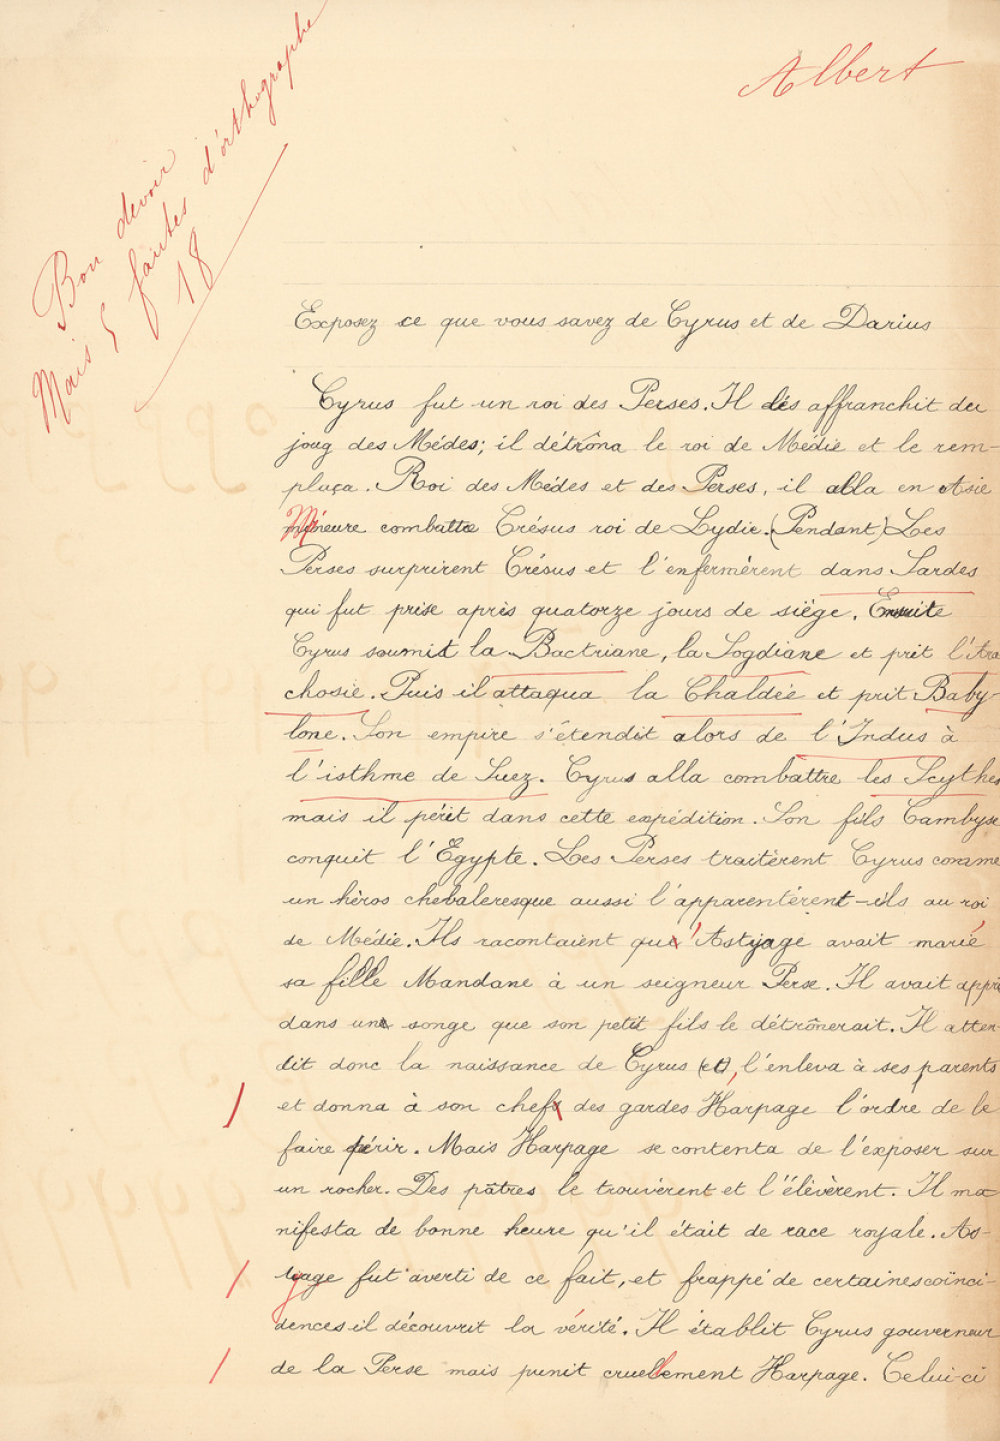 Albert
Bon devoir
Mais 5 fautes d'orthographe
18
Exposez ce que vous savez de Cyrus et de Darius
Cyrus fut un roi des Perses. Il les affranchit du
joug des Médes; il détrôna le roi de Médie et le rem-
plaça. Roi des Médes et des Perses, il alla en Asie
Mineure combattre Crésus roi de Lydie. (Pendant) Les
Perses surprirent Crésus et l'enfermèrent dans Sardes
qui fut prise après quatorze jours de siège. Ensuite
Cyrus soumit la Bactriane, la Sogdiane et prit l'Ara
chosie. Puis il attaqua la Chaldée et prit Baby-
lone. Son empire s'étendit alors de l'Indus à
l'isthme de Suez. Cyrus alla combattre les Scythes
mais il périt dans cette expédition. Son fils Cambyse
conquit l'Egypte. Les Perses traitèrent Cyrus comme
un héros chevaleresque aussi l'apparentèrent-ils au roi
de Médie. Ils racontaient qu'Astyage avait marié
sa fille Mandane à un seigneur Perse. Il avait appris
dans un songe que son petit fils le détrônerait. Il atten-
dit donc la naissance de Cyrus (et), l'enleva à ses parents
et donna à son chef des gardes Harpage l'ordre de le
faire périr. Mais Harpage se contenta de l'exposer sur
un rocher. Des pâtres le trouvèrent et l'élévèrent. Il ma-
nifesta de bonne heure qu'il était de race royale. As-
tyage fut averti de ce fait, et frappé de certaines coïnci-
dences il découvrit la vérité. Il établit Cyrus gouverneur
de la Perse mais punit cruellement Harpage. Celui-ci